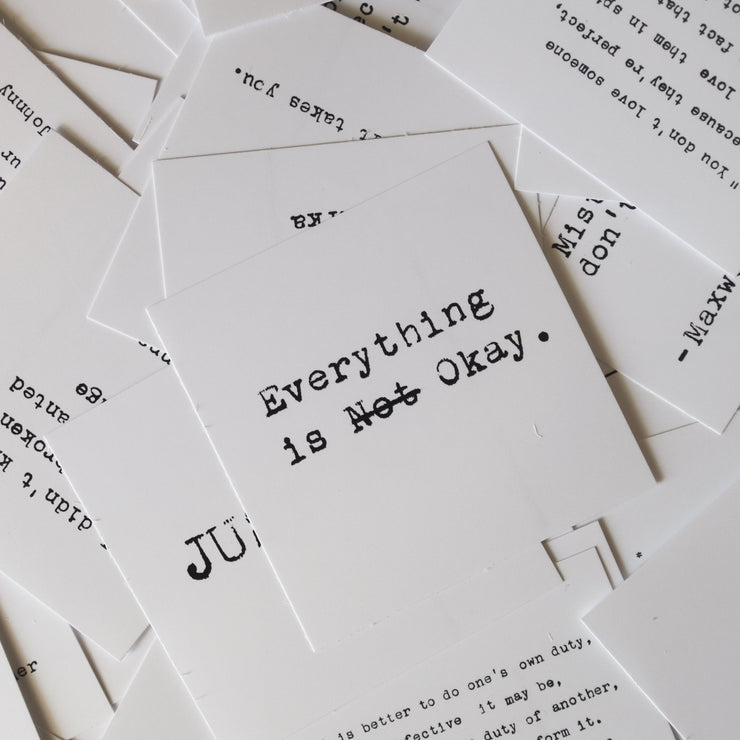 Everything
is ~~Not~~ Okay.
takes you.
"You don't love someone
because they're perfect,
love them in
fact that
don't
-Maxw
Johnny
didn't
broken
anted
JU
is better to do one's own duty,
it may be,
duty of another,
form it.
er
*